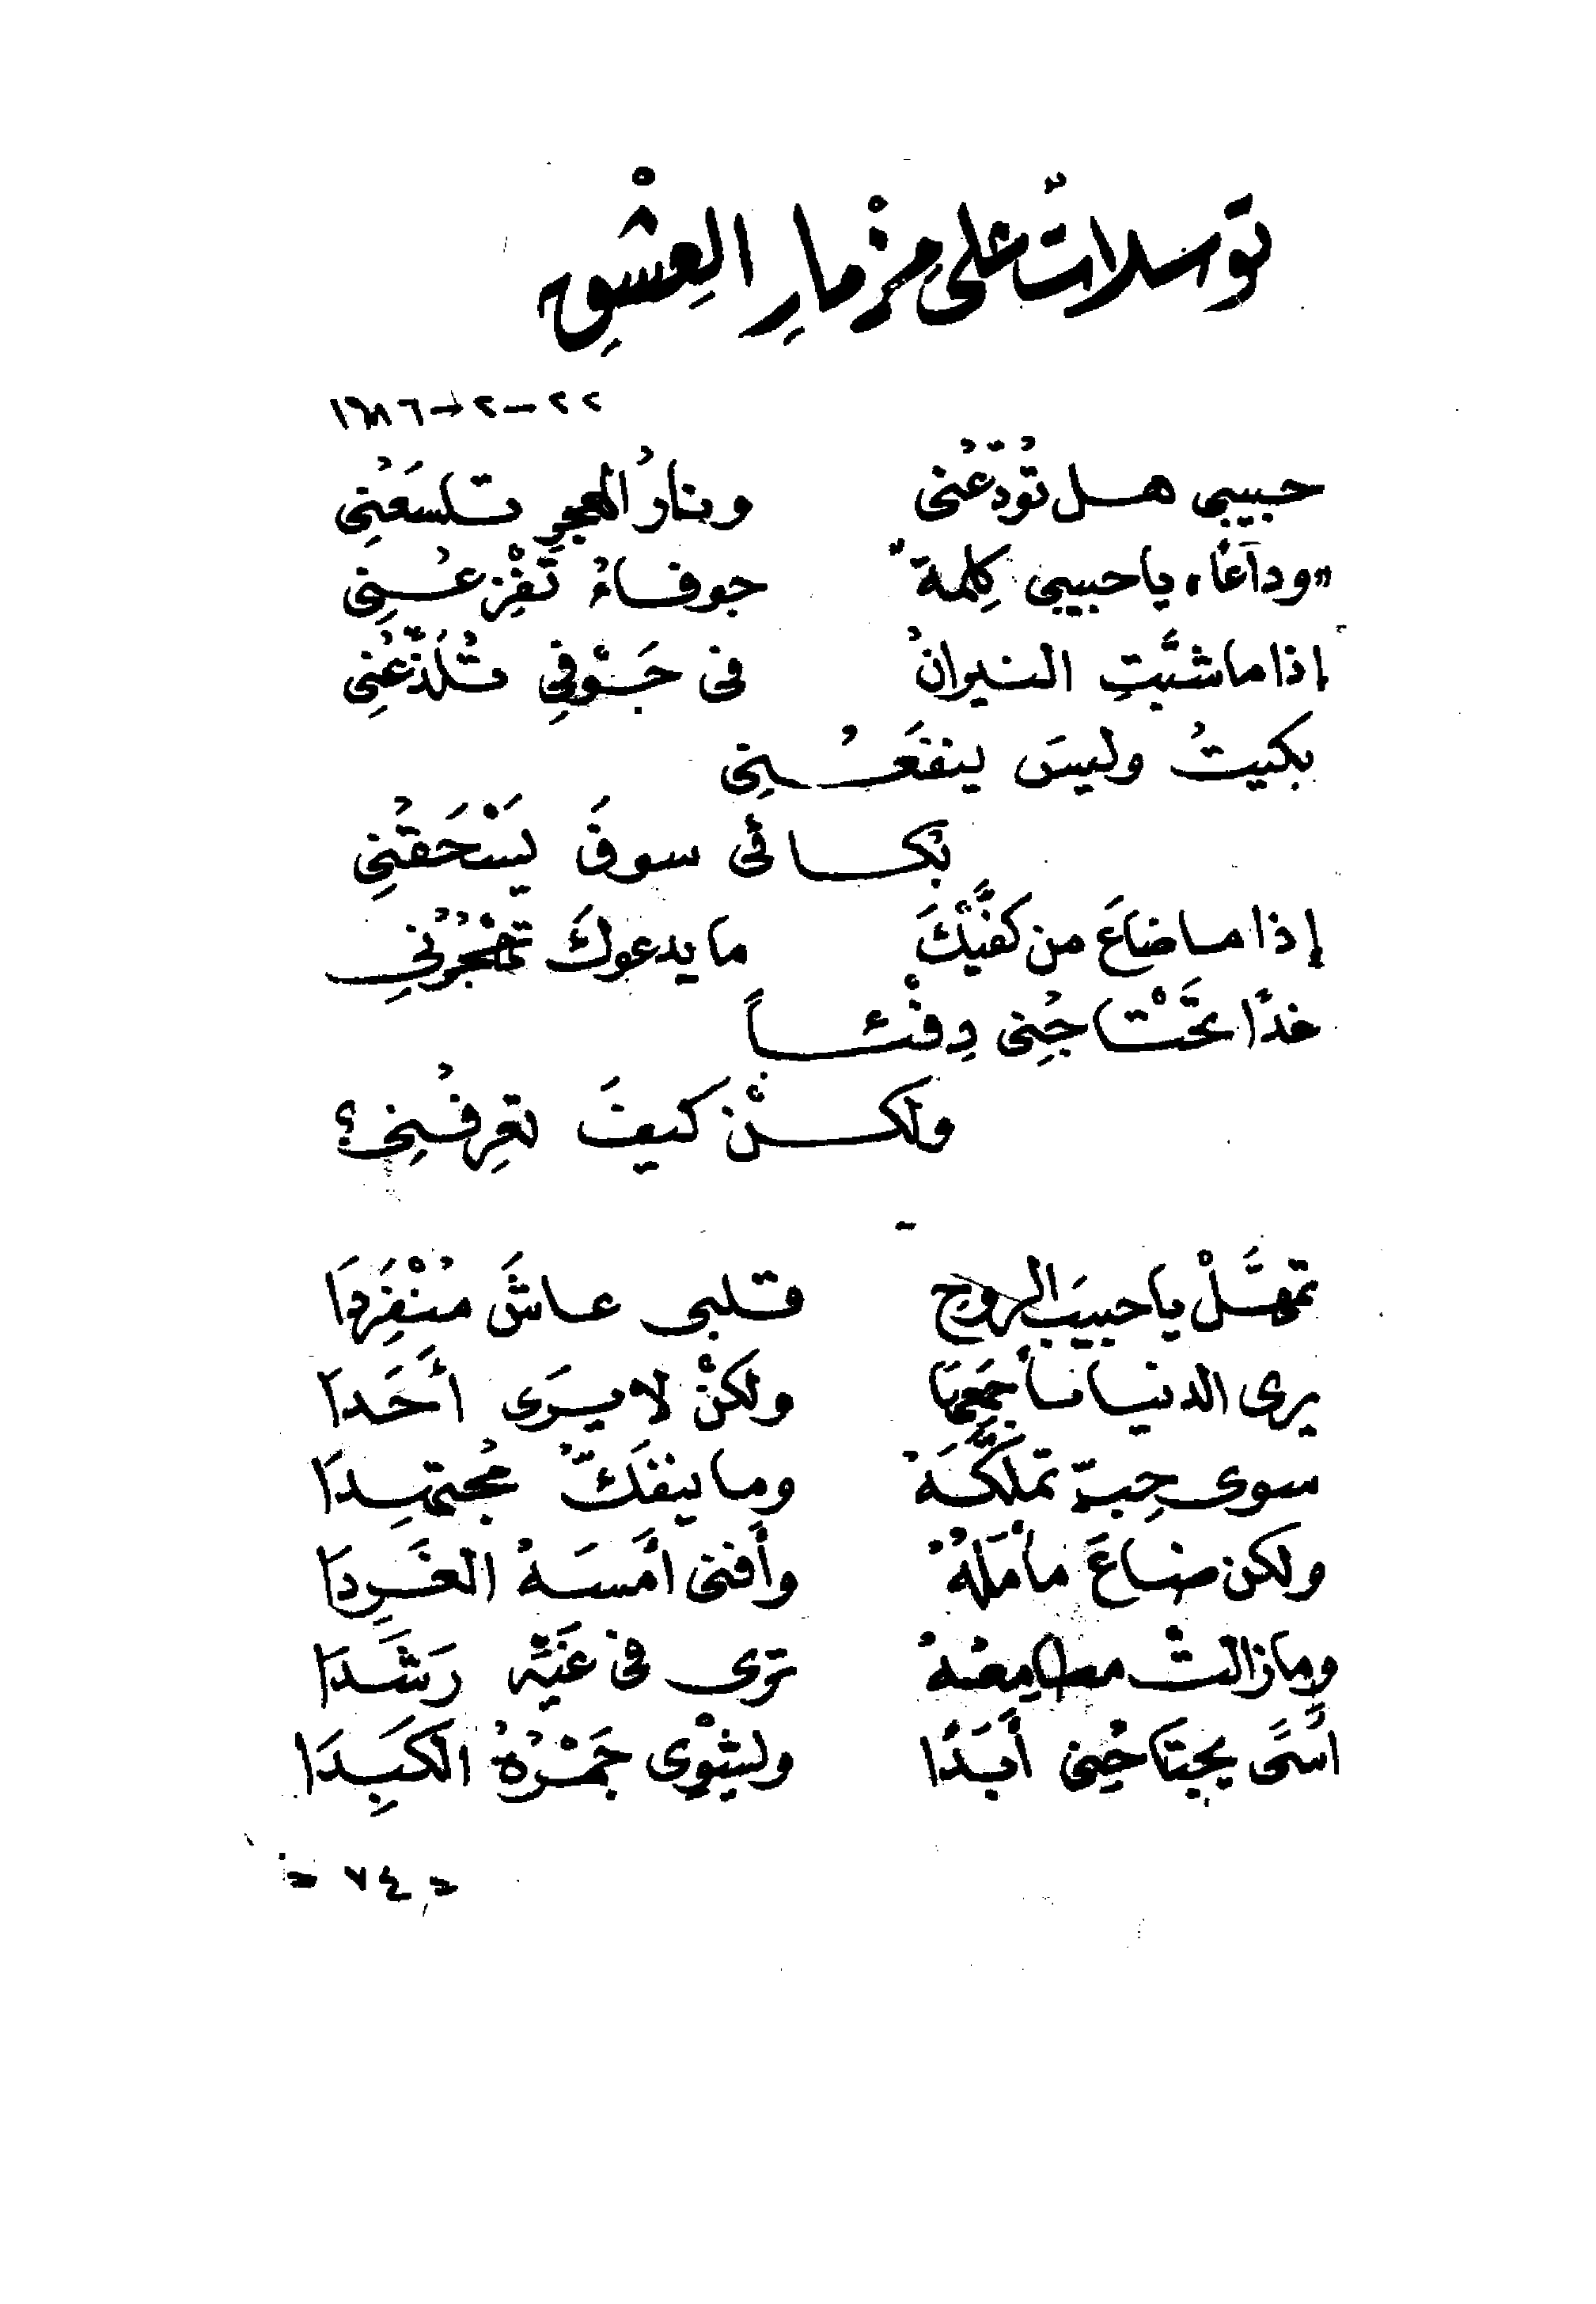 توسلاتٌ على مِزْمارِ العِشْقِ
٢٢-٢-١٩٨٦
حبيبي هل تُودّعُنى ونارُ الهجرِ تلسَعُنِى
"وداعًا" ياحبيبى كِلمةٌ جوفاءُ تَفْزِعُنِى
إذا ماشبَّتِ النيرانُ فى جَوْفِي تُلَذِّعُنِى
بكيتُ وليسَ ينفَعُنِى
بُكائى سوفَ يَسْحَقُنِى
إذا ماضاعَ من كفَّيْكَ مايدعوكَ تهْجُرُنِى
غدًا تحَتْاجُنِى دِفْئاً
ولكنْ كيفَ تعرِفُنِى؟
تمهَّلْ ياحبيبَ الروحِ قلبى عاشَ مُنْفَرِدَا
يرى الدنيا بأجمَعِهَا ولكنْ لايرَى أَحَدا
سوى حِبٍّ تملَّكَهُ وماينفَكُّ مُجتهِدَا
ولكن ضاعَ مأمَلُهُ وأفنى أمسَهُ الغَرِدَا
ومازالتْ مطامِعُهُ ترى فى غَيِّهِ رَشَدَا
أسًى يجتَاحُنِى أَبَدًا ويشْوِى جَمْرُهُ الكَبِدَا
= ٧٤ =